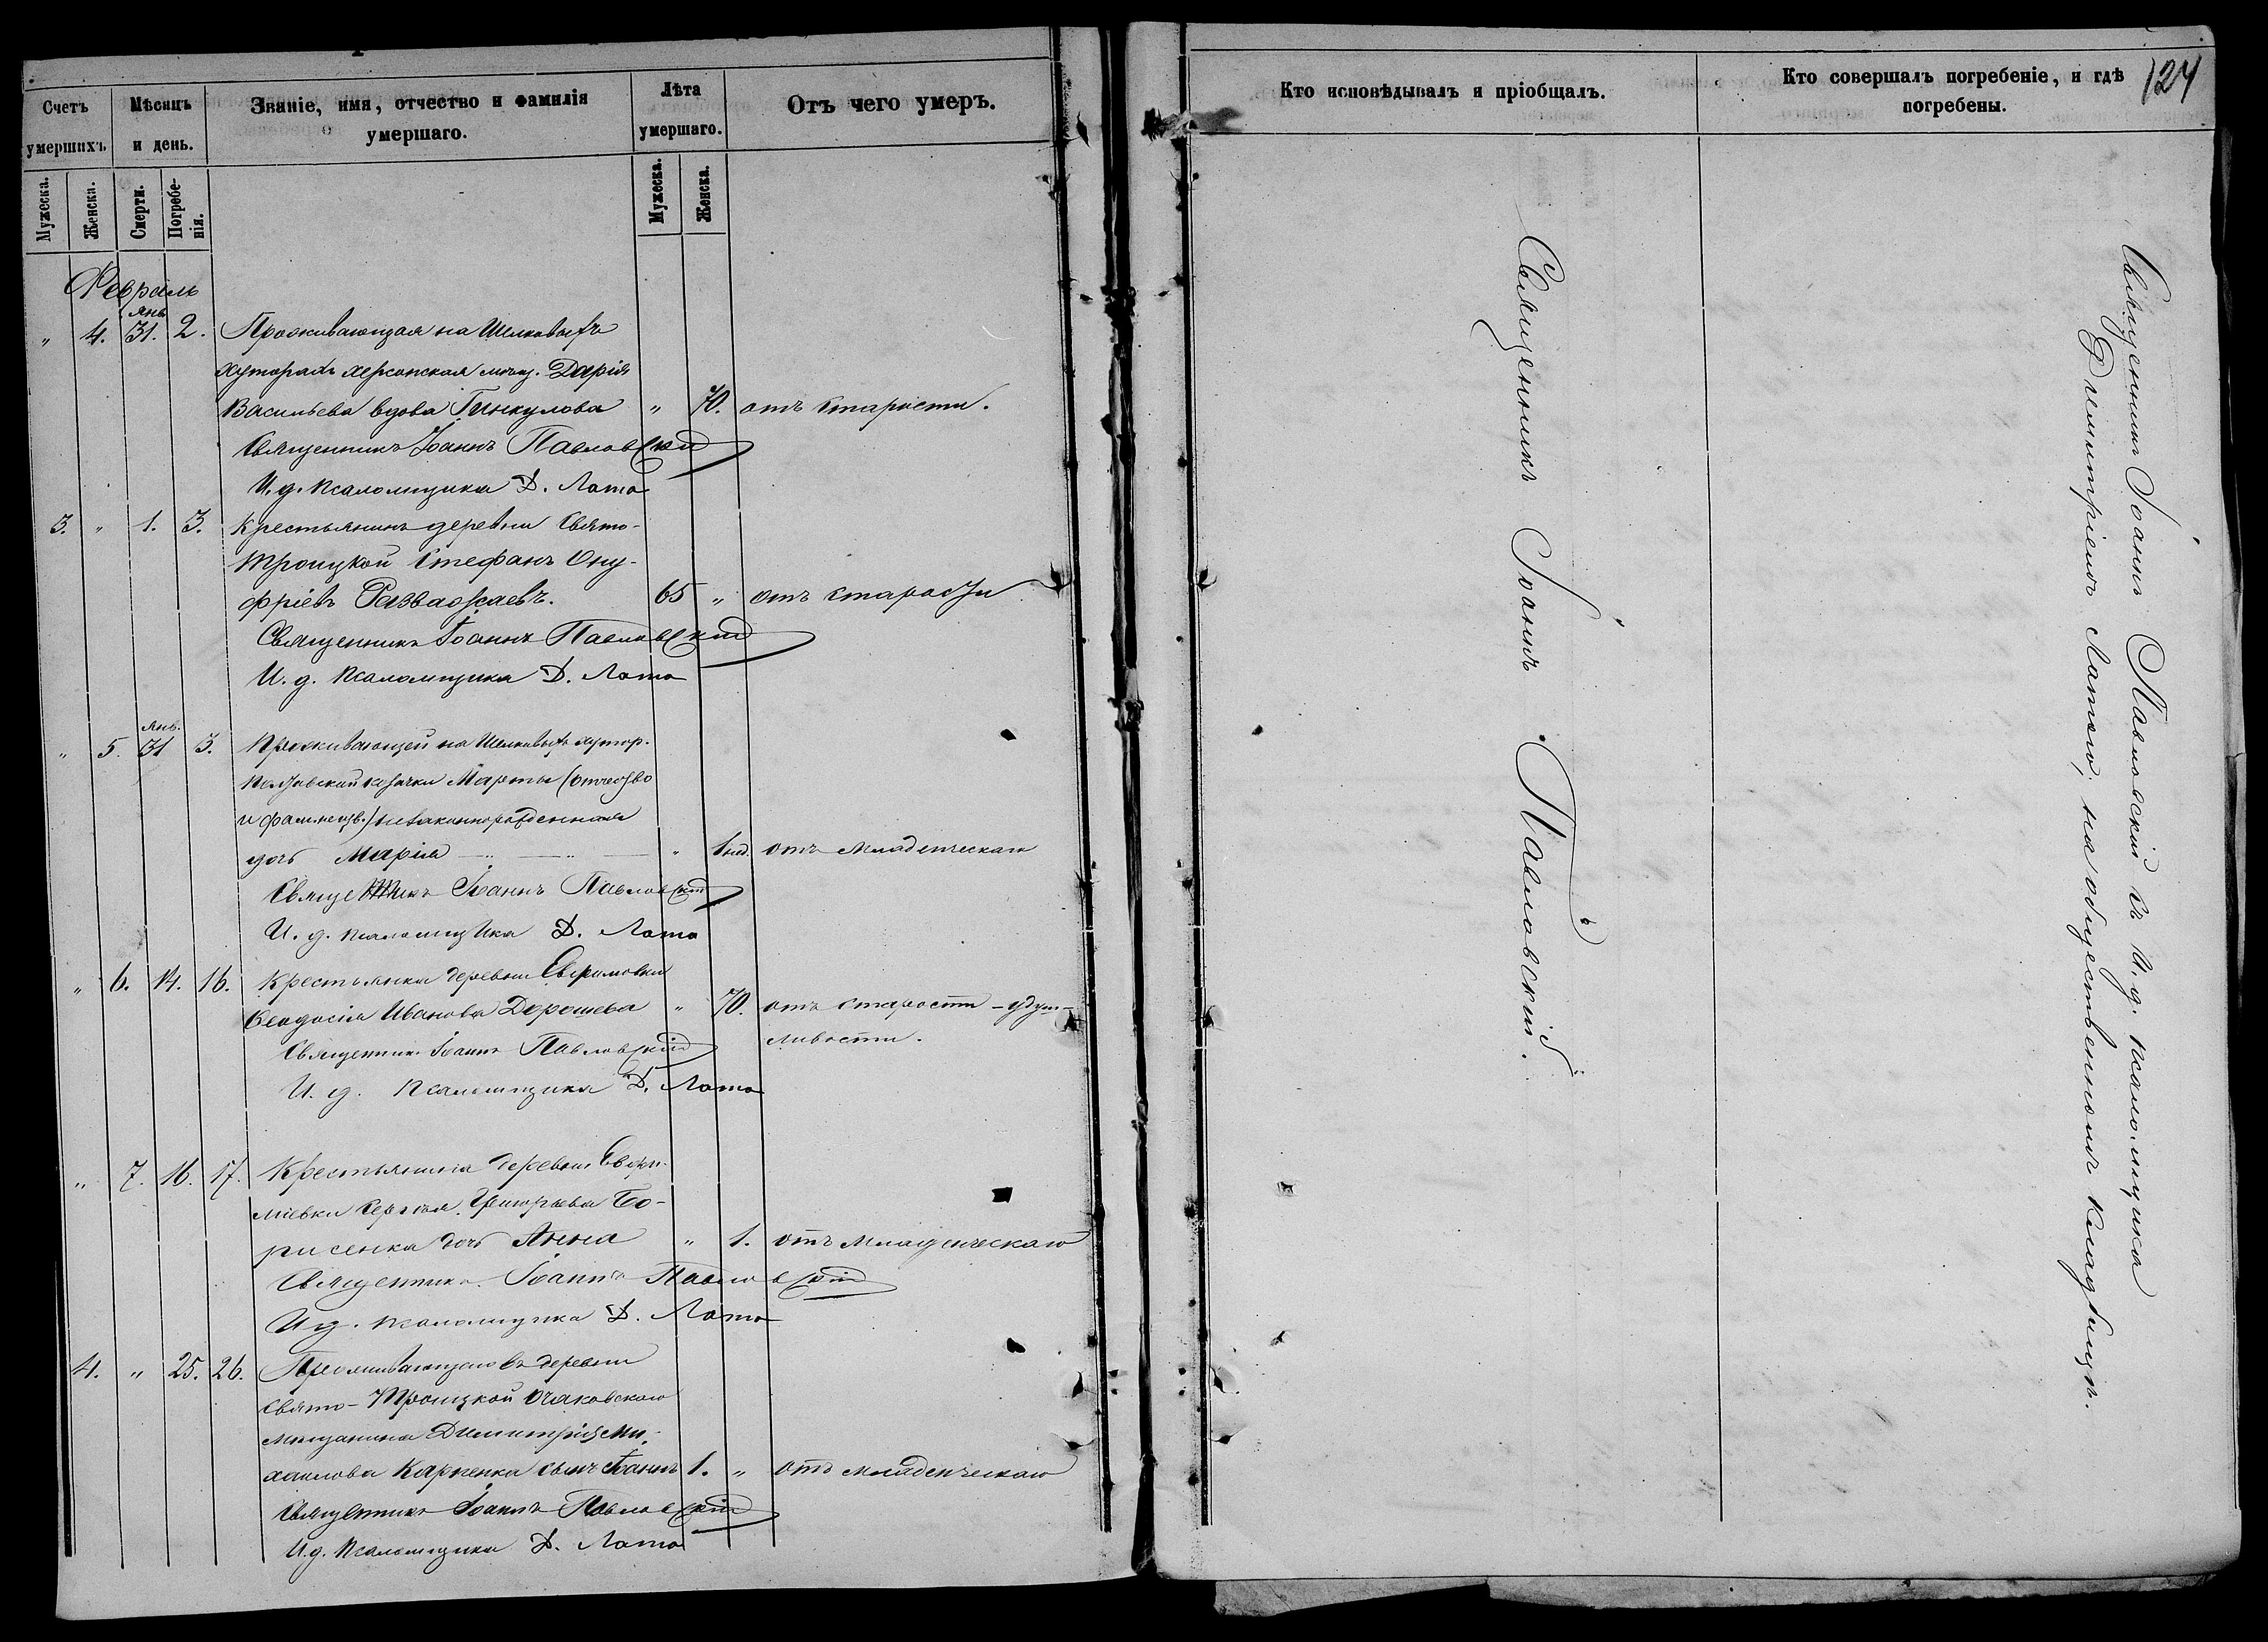 Счетъ умершихъ.
Мѣсяцъ и день.
Званіе, имя, отчество и фамилія умершаго.
Лѣта умершаго.
Отъ чего умеръ.
Мужеска.
Женска.
Смерти.
Погребе-
нія.
Мужеска.
Женска.
Февраль
янв.
" 4. 31. 2. Проживающая на Шелковыхъ
хуторахъ херсонская мѣщ. Дарія
Васильева вдова Гинкулова " 70. отъ старости.
Священникъ Іоаннъ Павловскій
И. д. псаломщика Д. Лато
3. " 1. 3. Крестьянинъ деревни Свято-
Троицкой Стефанъ Ону-
фріевъ Разважаевъ. 65 " отъ старости
Священникъ Іоаннъ Павловскій
И. д. псаломщика Д. Лато
янв.
" 5. 31 3. Проживающей на Шелковыхъ хутор.
полтавской козачки Марты (отчество
и фам. неизв.) незаконнорожденная
дочь Марія " 1 нед. отъ младенческаго
Священникъ Іоаннъ Павловскій
И. д. псаломщика Д. Лато
" 6. 14. 16. Крестьянка деревни Евфимовки
Феодосія Иванова Дорошева " 70. отъ старости - удуш-
ливости.
Священникъ Іоаннъ Павловскій
И. д. псаломщика Д. Лато
" 7. 16. 17. Крестьянина деревни Евфи-
міевки Сергія Григорьева Бо-
рисенка дочь Анна " 1. отъ младенческаго
Священникъ Іоаннъ Павловскій
И. д. псаломщика Д. Лато
4. " 25. 26. Проживающаго въ деревни
Свято-Троицкой Очаковскаго
мѣщанина Димитрія Ми-
хайлова Карпенка сынъ Іоаннъ 1. " отъ младенческаго
Священникъ Іоаннъ Павловскій
И. д. псаломщика Д. Лато
Кто исповѣдывалъ и пріобщалъ.
Кто совершалъ погребеніе, и гдѣ
погребены.
124
Священникъ Іоаннъ Павловскій.
Священникъ Іоаннъ Павловскій съ И. д. псаломщика
Димитріемъ Латою, на общественномъ кладбищѣ.